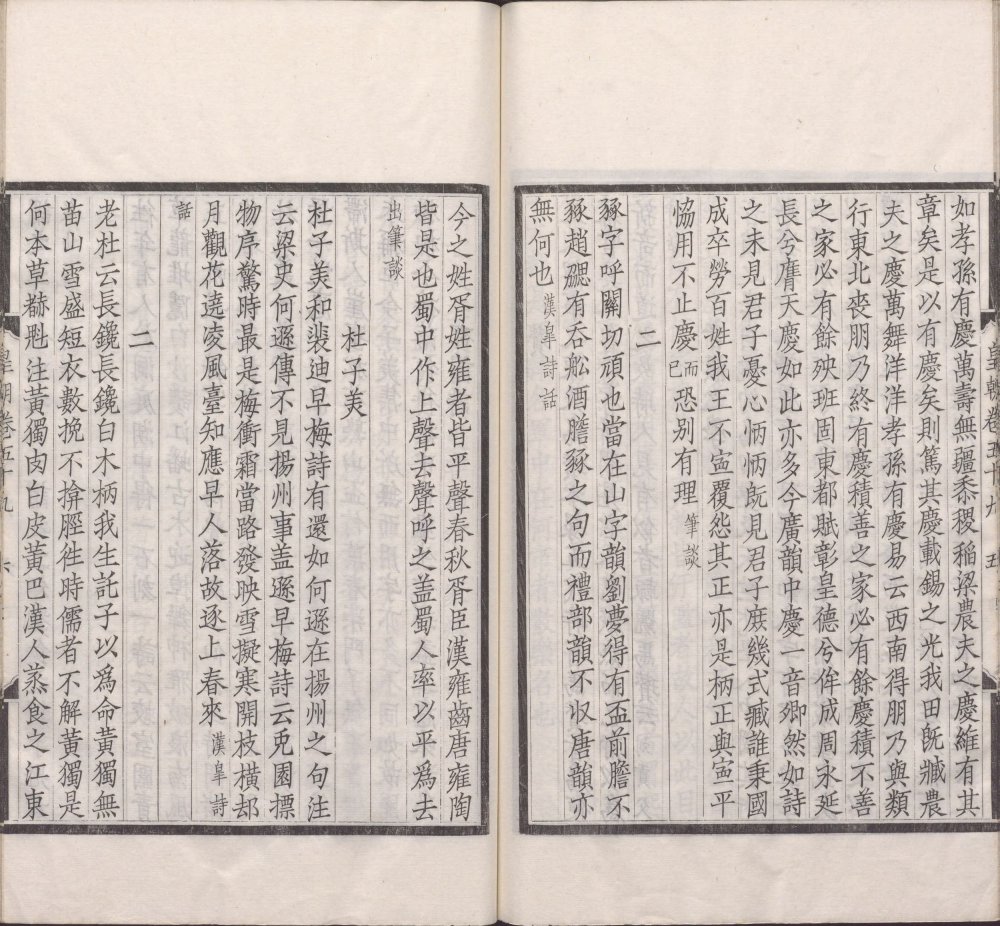 如孝孫有慶萬壽無疆黍稷稻梁農夫之慶維有其
章矣是以有慶矣則篤其慶載錫之光我田既臧農
夫之慶萬舞洋洋孝孫有慶易云西南得朋乃與類
行東北喪朋乃終有慶積善之家必有餘慶積不善
之家必有餘殃班固東都賦彰皇德兮侔成周永延
長兮膺天慶如此亦多今廣韻中慶一音卿然如詩
之未見君子憂心怲怲既見君子庶幾式臧誰秉國
成卒勞百姓我王不寍覆怨其正亦是柄正與寍平
恊用不止慶而已恐别有理筆談
二
豩字呼關切頑也當在山字韻劉夢得有盃前膽不
豩趙勰有吞船酒膽豩之句而禮部韻不収唐韻亦
無何也漢皐詩話
皇朝卷五十九 五
今之姓胥姓雍者皆平聲春秋胥臣漢雍齒唐雍陶
皆是也蜀中作上聲去聲呼之盖蜀人率以平爲去
出筆談
杜子美
杜子美和裴迪早梅詩有還如何遜在揚州之句注
云梁史何遜傳不見揚州事盖遜早梅詩云兎園摽
物序驚時最是梅衝霜當路發映雪擬寒開枝横却
月觀花遶凌風臺知應早人落故逐上春來漢皐詩
話
二
老杜云長鑱長鑱白木柄我生託子以爲命黄獨無
苗山雪盛短衣數挽不揜脛徃時儒者不解黄獨是
何本草赭魁注黄獨肉白皮黄巴漢人蒸食之江東
皇朝卷五十九 六